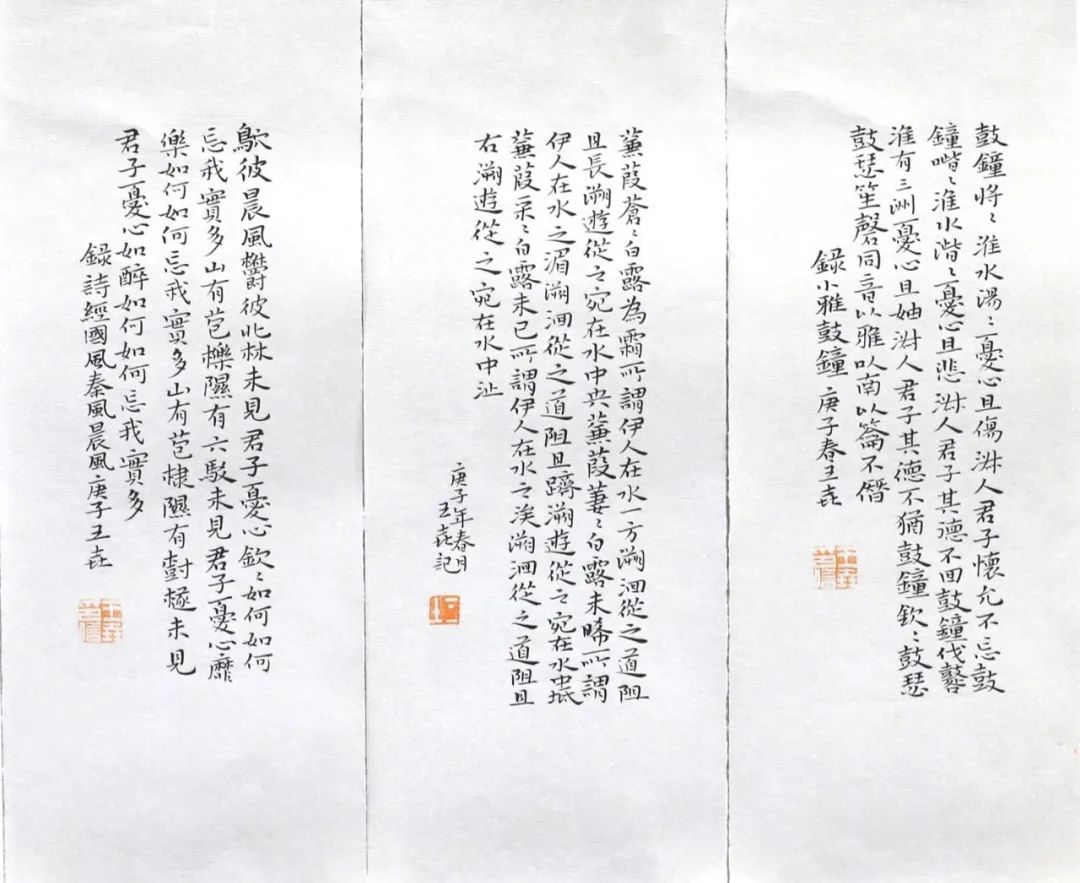 鼓鐘將〻淮水湯〻憂心且傷淑人君子懷允不忘鼓
鐘喈〻淮水湝〻憂心且悲淑人君子其德不回鼓鐘伐鼛
淮有三洲憂心且妯淑人君子其德不猶鼓鐘欽〻鼓瑟
鼓瑟笙磬同音以雅以南以籥不僭
録小雅鼓鐘 庚子春王㐂
蒹葭蒼〻白露為霜所謂伊人在水一方溯洄從之道阻
且長溯遊從之宛在水中央蒹葭萋〻白露未晞所謂
伊人在水之湄溯洄從之道阻且躋溯遊從之宛在水中坻
蒹葭采〻白露未已所謂伊人在水之涘溯洄從之道阻且
右溯遊從之宛在水中沚
庚子年春月
王㐂記
鴥彼晨風鬱彼北林未見君子憂心欽〻如何如何
忘我實多山有苞櫟隰有六駁未見君子憂心靡
樂如何如何忘我實多山有苞棣隰有樹檖未見
君子憂心如醉如何如何忘我實多
録詩經國風秦風晨風庚子王㐂